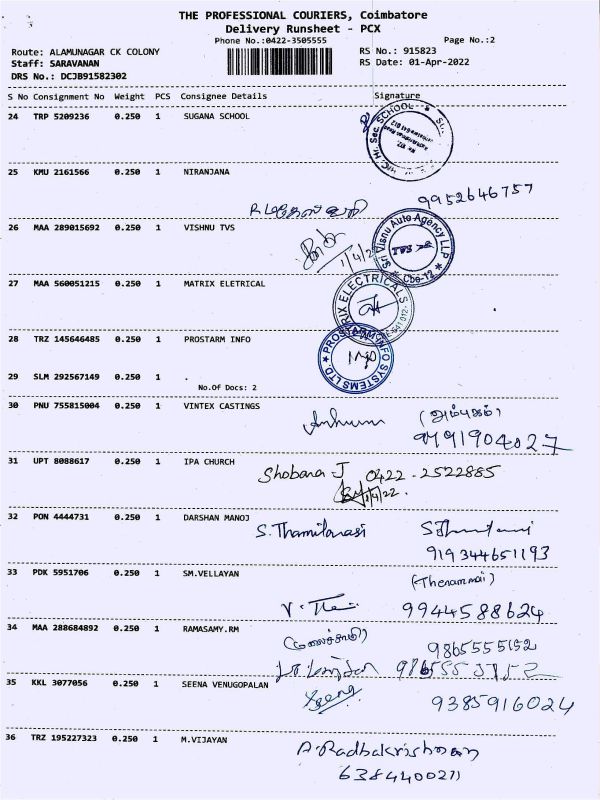 THE PROFESSIONAL COURIERS, Coimbatore
Delivery Runsheet - PCX
Phone No.:0422-3505555
Page No.:2
Route: ALAMUNAGAR CK COLONY
RS No.: 915823
Staff: SARAVANAN
RS Date: 01-Apr-2022
DRS No.: DCJB91582302
S No Consignment No Weight PCS Consignee Details Signature
24 TRP 5209236 0.250 1 SUGANA SCHOOL
25 KMU 2161566 0.250 1 NIRANJANA
9952646757
26 MAA 289015692 0.250 1 VISHNU TVS
Sri Visnu Auto Agency LLP
TVS
Cbe-12
1/4/2
27 MAA 560051215 0.250 1 MATRIX ELETRICAL
RIX ELECTRICALS
28 TRZ 145646485 0.250 1 PROSTARM INFO
PROSTARM INFO SYSTEMS LTD.
29 SLM 292567149 0.250 1
No.Of Docs: 2
30 PNU 755815004 0.250 1 VINTEX CASTINGS
31 UPT 8088617 0.250 1 IPA CHURCH
Shobana-J 0422-2522885
1/4/22.
32 PON 4444731 0.250 1 DARSHAN MANOJ
S. Thamilarasi
919344651193
33 PDK 5951706 0.250 1 SM.VELLAYAN
(Thenammai)
9944588624
34 MAA 288684892 0.250 1 RAMASAMY.RM
35 KKL 3077056 0.250 1 SEENA VENUGOPALAN
9385916024
36 TRZ 195227323 0.250 1 M.VIJAYAN
A. Radhakrishnan